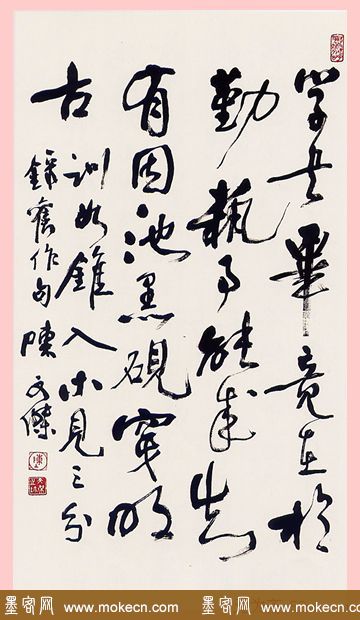 學書畢竟在於
勤藝事能成
有因池黑硯穿明
古訓如錐入木見三分
錄舊作句陳文傑
墨客网 www.mokecn.com 墨客网 www.mokecn.com